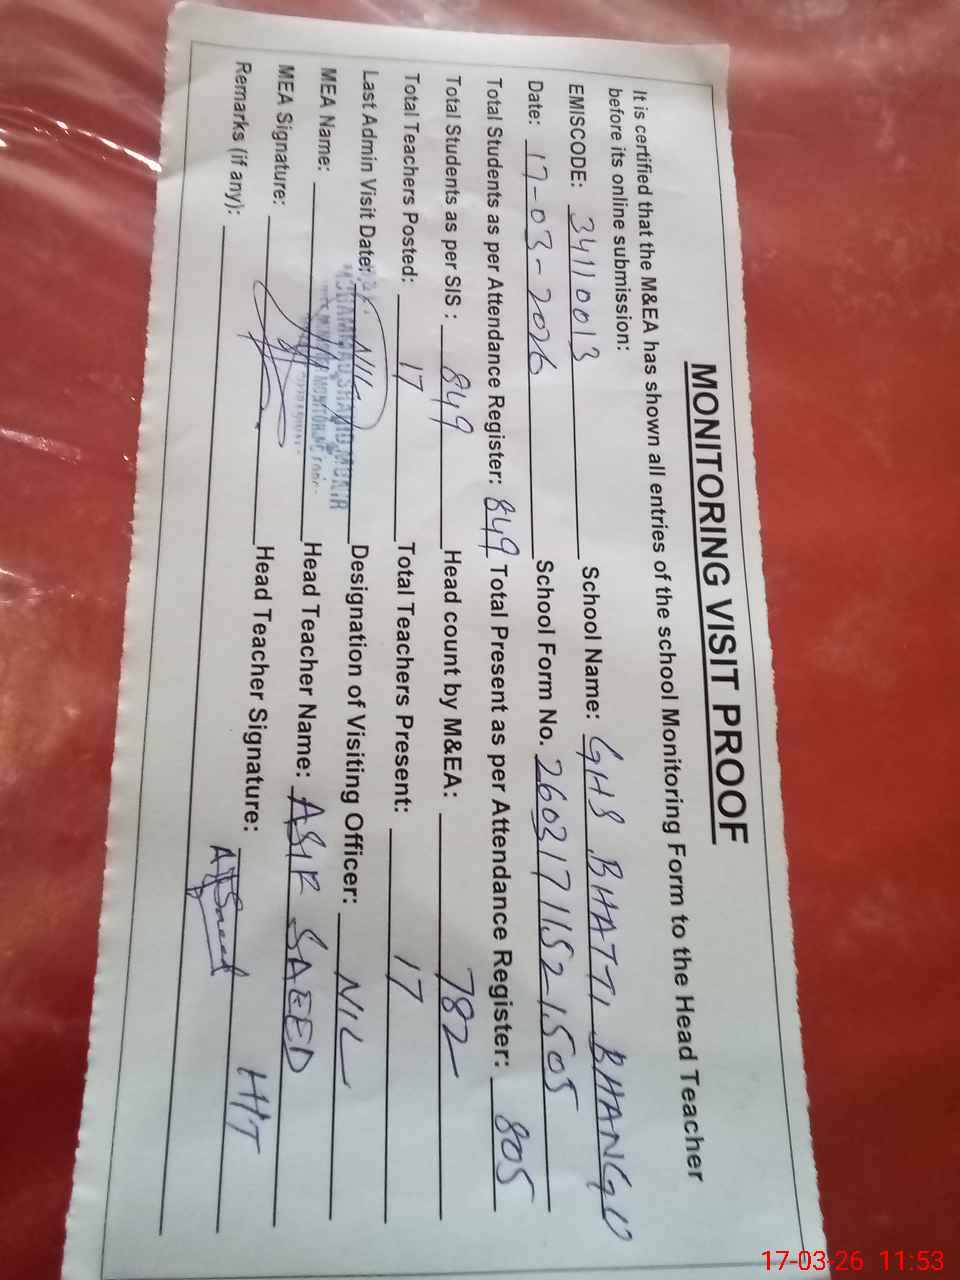 MONITORING VISIT PROOF
It is certified that the M&EA has shown all entries of the school Monitoring Form to the Head Teacher
before its online submission:
EMISCODE: 34110013 School Name: GHS BHATTI BHANGO
Date: 17-03-2026 School Form No. 2603171152-1505
Total Students as per Attendance Register: 849 Total Present as per Attendance Register: 805
Total Students as per SIS: 849 Head count by M&EA: 782
Total Teachers Posted: 17 Total Teachers Present: 17
Last Admin Visit Date: NIL Designation of Visiting Officer: NIL
MEA Name: Head Teacher Name: ASIF SAEED
MEA Signature: Head Teacher Signature: HT
Remarks (if any):
17-03-26 11:53